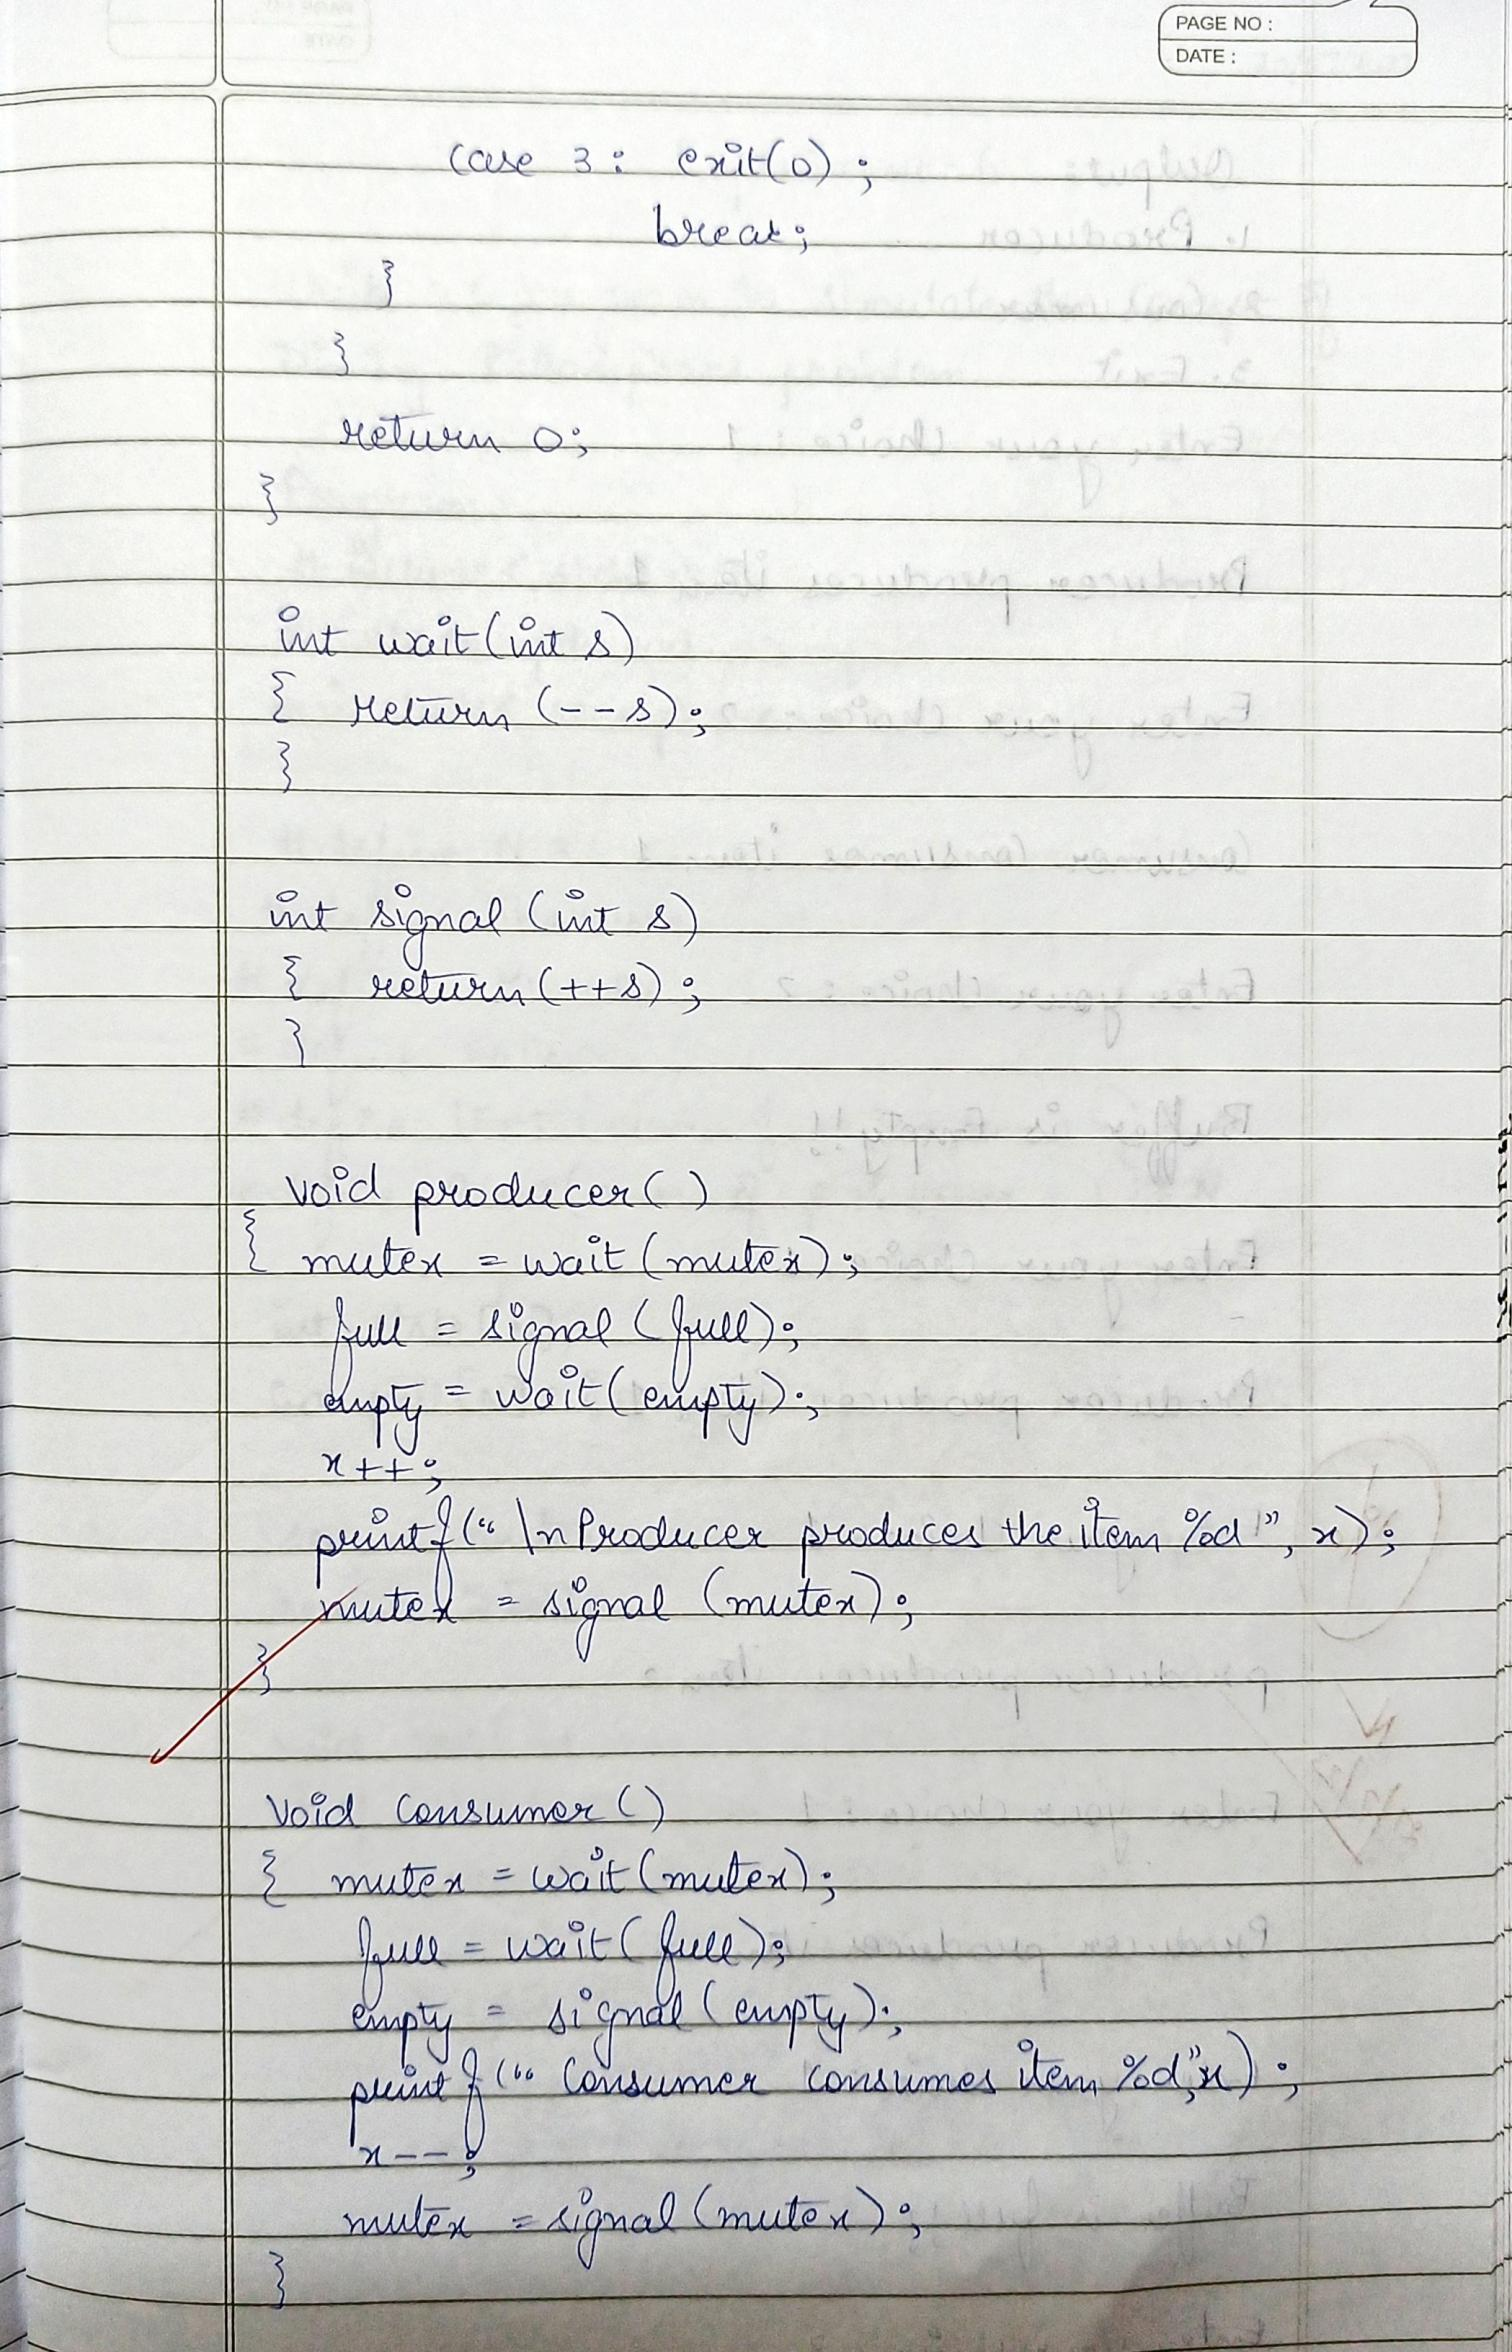 PAGE NO :
DATE :
case 3 : exit(0) ;
break;
}
}
return 0;
}
int wait(int s)
{ return (--s);
}
int signal (int s)
{ return (++s) ;
}
void producer( )
{ mutex = wait (mutex);
full = signal (full);
empty = wait( empty);
x++;
printf(" \n Producer produces the item %d ", x);
mutex = signal (mutex);
}
void consumer ()
{ mutex = wait (mutex);
full = wait( full);
empty = signal( empty);
printf (" Consumer consumes item %d",x) ;
x--;
mutex = signal (mutex);
}